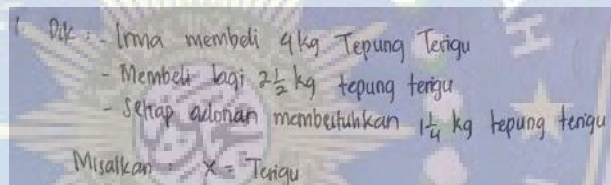 1. Dik : - Irma membeli 4 kg Tepung Terigu
- Membeli lagi 2 1/2 kg tepung terigu
- Setiap adonan membutuhkan 1 1/4 kg tepung terigu
Misalkan : x = Terigu